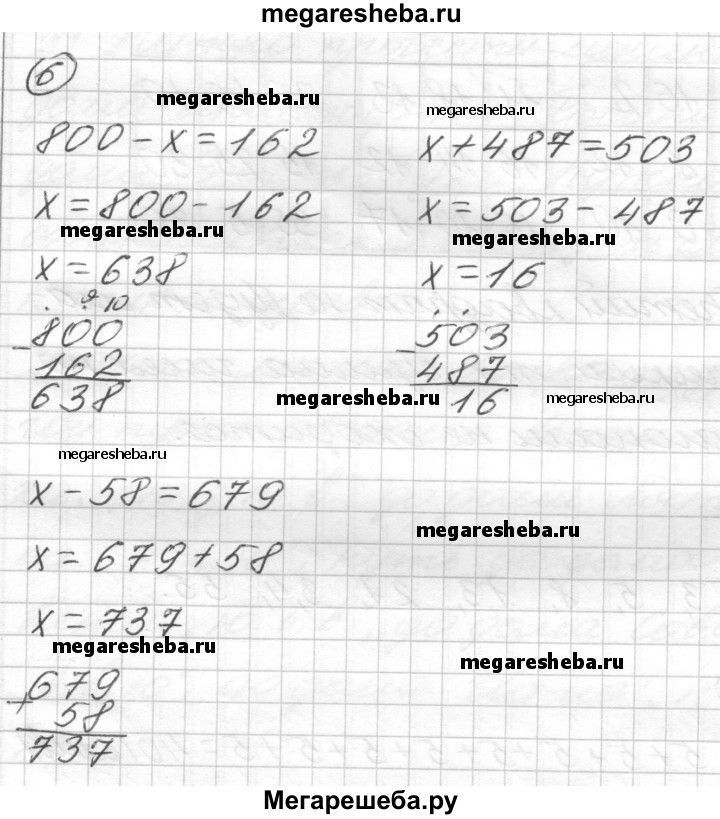 megaresheba.ru
6
megaresheba.ru
megaresheba.ru
800 - x = 162
x = 800 - 162
megaresheba.ru
x = 638
9 10
800
- 162
638
x + 487 = 503
x = 503 - 487
megaresheba.ru
x = 16
503
- 487
16
megaresheba.ru
megaresheba.ru
megaresheba.ru
x - 58 = 679
megaresheba.ru
x = 679 + 58
x = 737
megaresheba.ru
megaresheba.ru
679
+ 58
737
Мегарешеба.ру